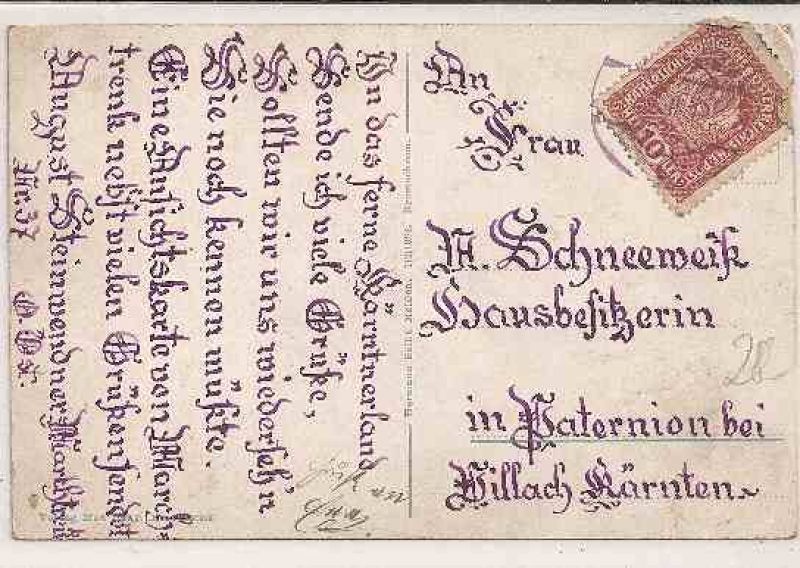 In das ferne Kärntnerland
Sende ich viele Grüße,
Sollten wir uns wiederseh'n
Sie noch kennen müßte.
Eine Ansichtskarte von March-
trenk nebst vielen Grüßen sendet
August Steinwendner, Marchtrenk
Nr. 37 O. Ö.
An
Frau
A. Schneeweiß
Hausbesitzerin
in Paternion bei
Villach Kärnten
10
28